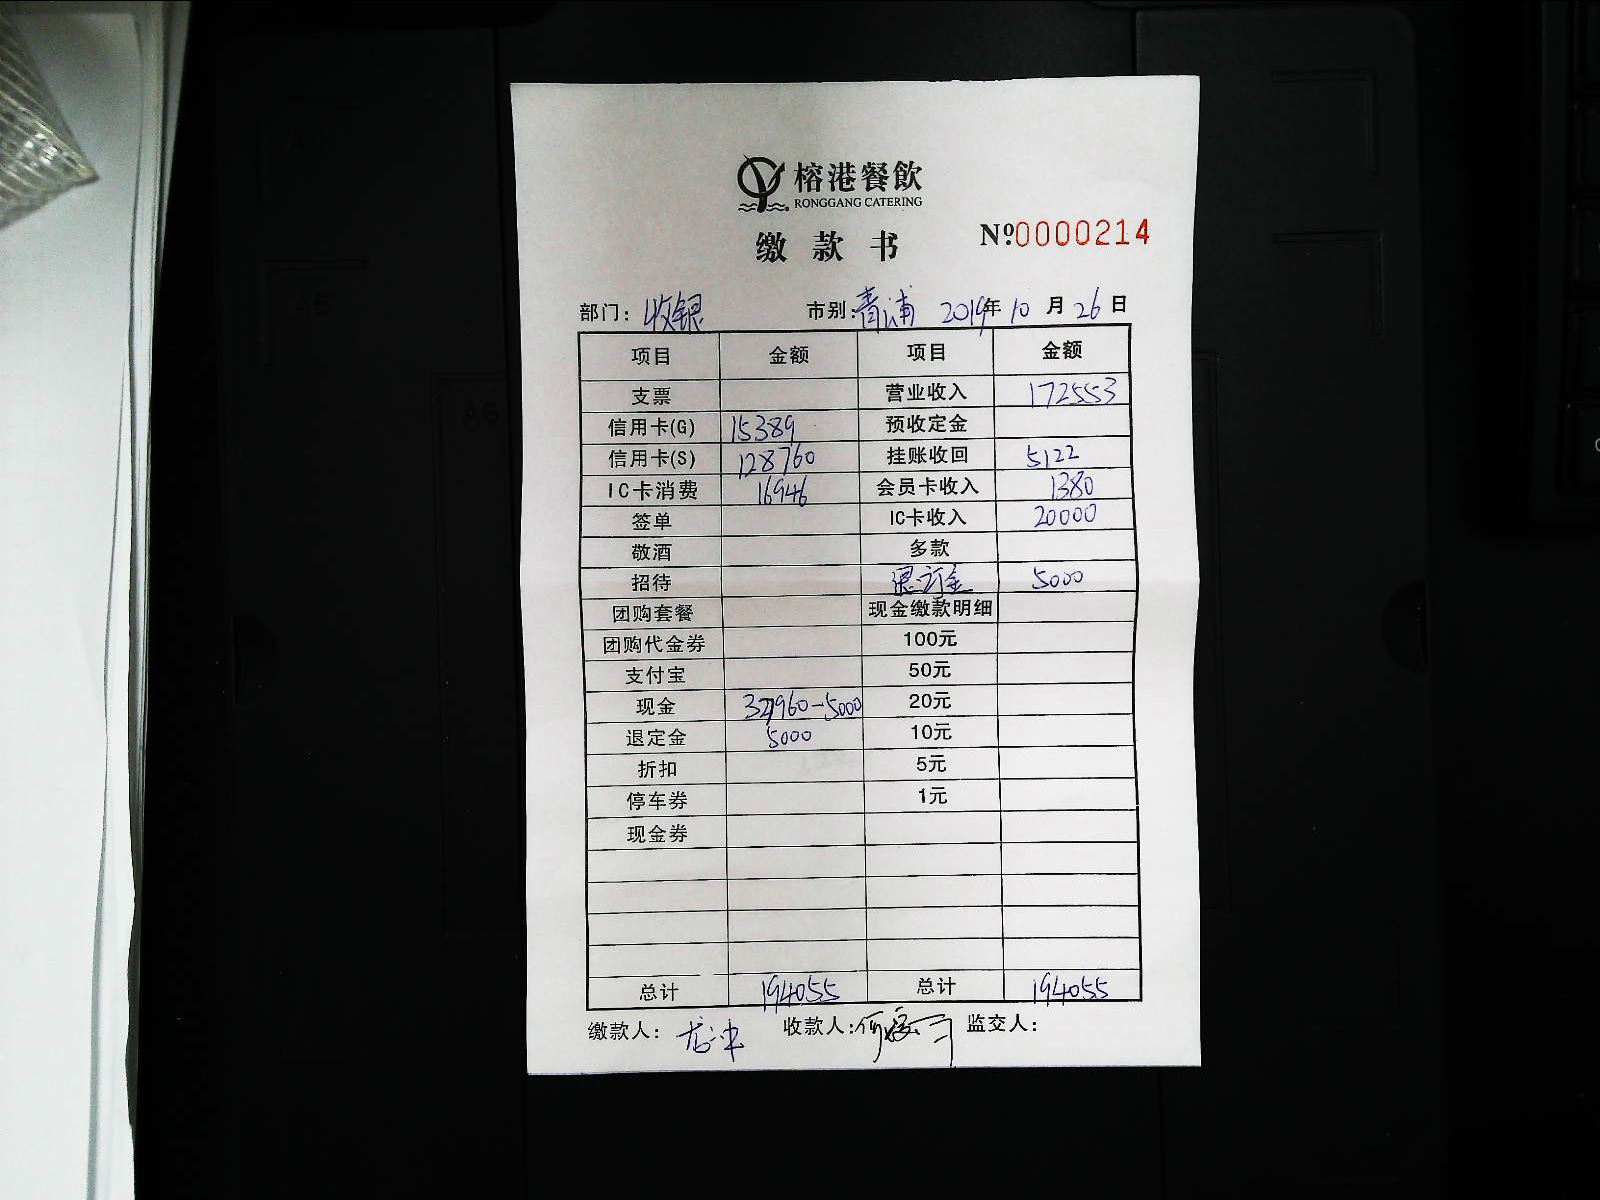 榕港餐飲
RONGGANG CATERING
缴款书
Nº0000214
部门：收银 市别：青浦 2019年10月26日
项目 金额 项目 金额
支票 营业收入 172553
信用卡(G) 15389 预收定金
信用卡(S) 128760 挂账收回 5122
IC卡消费 16946 会员卡收入 1380
签单 IC卡收入 20000
敬酒 多款
招待 退订金 5000
团购套餐 现金缴款明细
团购代金券 100元
支付宝 50元
现金 32960-5000 20元
退定金 5000 10元
折扣 5元
停车券 1元
现金券
总计 194055 总计 194055
缴款人： 收款人： 监交人：